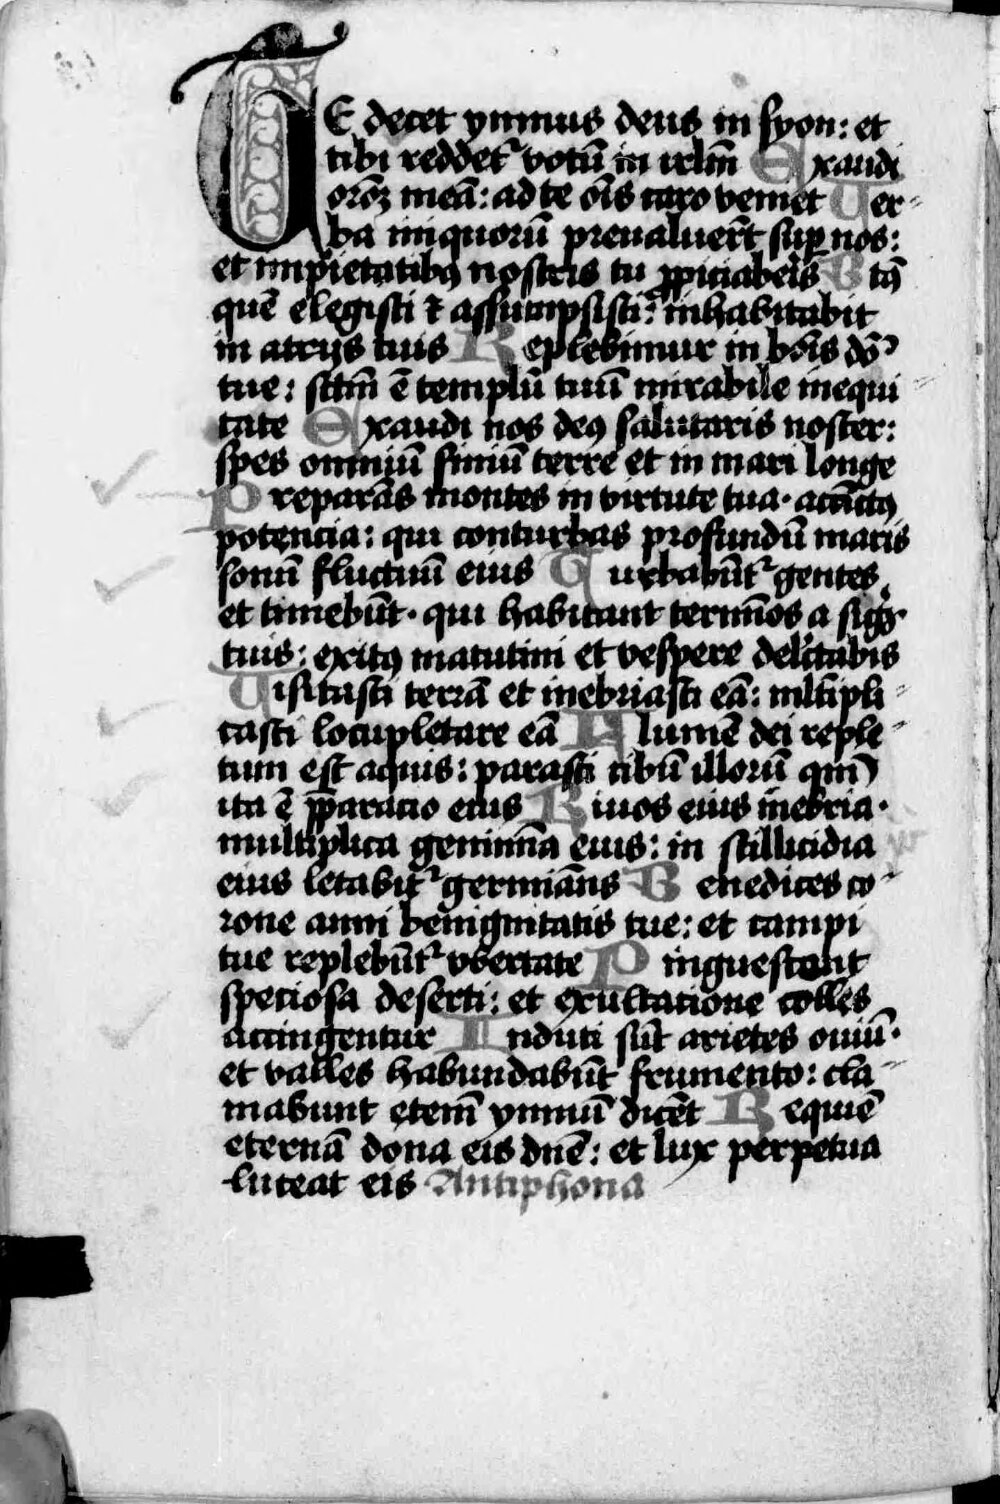 TE decet ymnus deus in syon: et
tibi reddet᷑ votū in irlm̄ Exaudi
orōꝫ meā: ad te oīs caro veniet Ver⸗
ba iniquorū preualuer̄t suꝑ nos:
et impietatibꝯ nostris tu ꝓpiciaberis Btꝯ
quē elegisti ⁊ assumpsisti: inhabitabit
in atrijs tuis Replebimur in bōis doꝰ
tue: sctm̄ ē templū tuū mirabile in equi⸗
tate Exaudi nos deꝯ salutaris noster:
spes omniū finiū terre et in mari longe
Preparās montes in virtute tua· acc̄inctꝯ
potencia: qui conturbas profundū maris
sonū fluctuū eius Turbabūt᷑ gentes
et timebūt· qui habitant termīos a sig·
tuis: exitꝯ matutini et vespere delc̄tabis
Visitasti terrā et inebriasti eā: ml̄tipli⸗
casti locupletare eā Flumē dei reple⸗
tum est aquis: parasti cibū illorū qm̄
ita ē p̄paracio eius Riuos eius inebria·
multiplica genimīa eius: in stillicidia
eius letabit᷑ germiāns Benedices co⸗
rone anni benignitatis tue: et campi
tue replebūt᷑ vbertate Pinguescent
speciosa deserti: et exultatione colles
accingentur Induti sūt arietes ouiū·
et valles habundabūt frumento: cla⸗
mabunt etem̄ ymnū dicēt Requiē
eternā dona eis dnē: et lux perpetua
luceat eis Antiphona